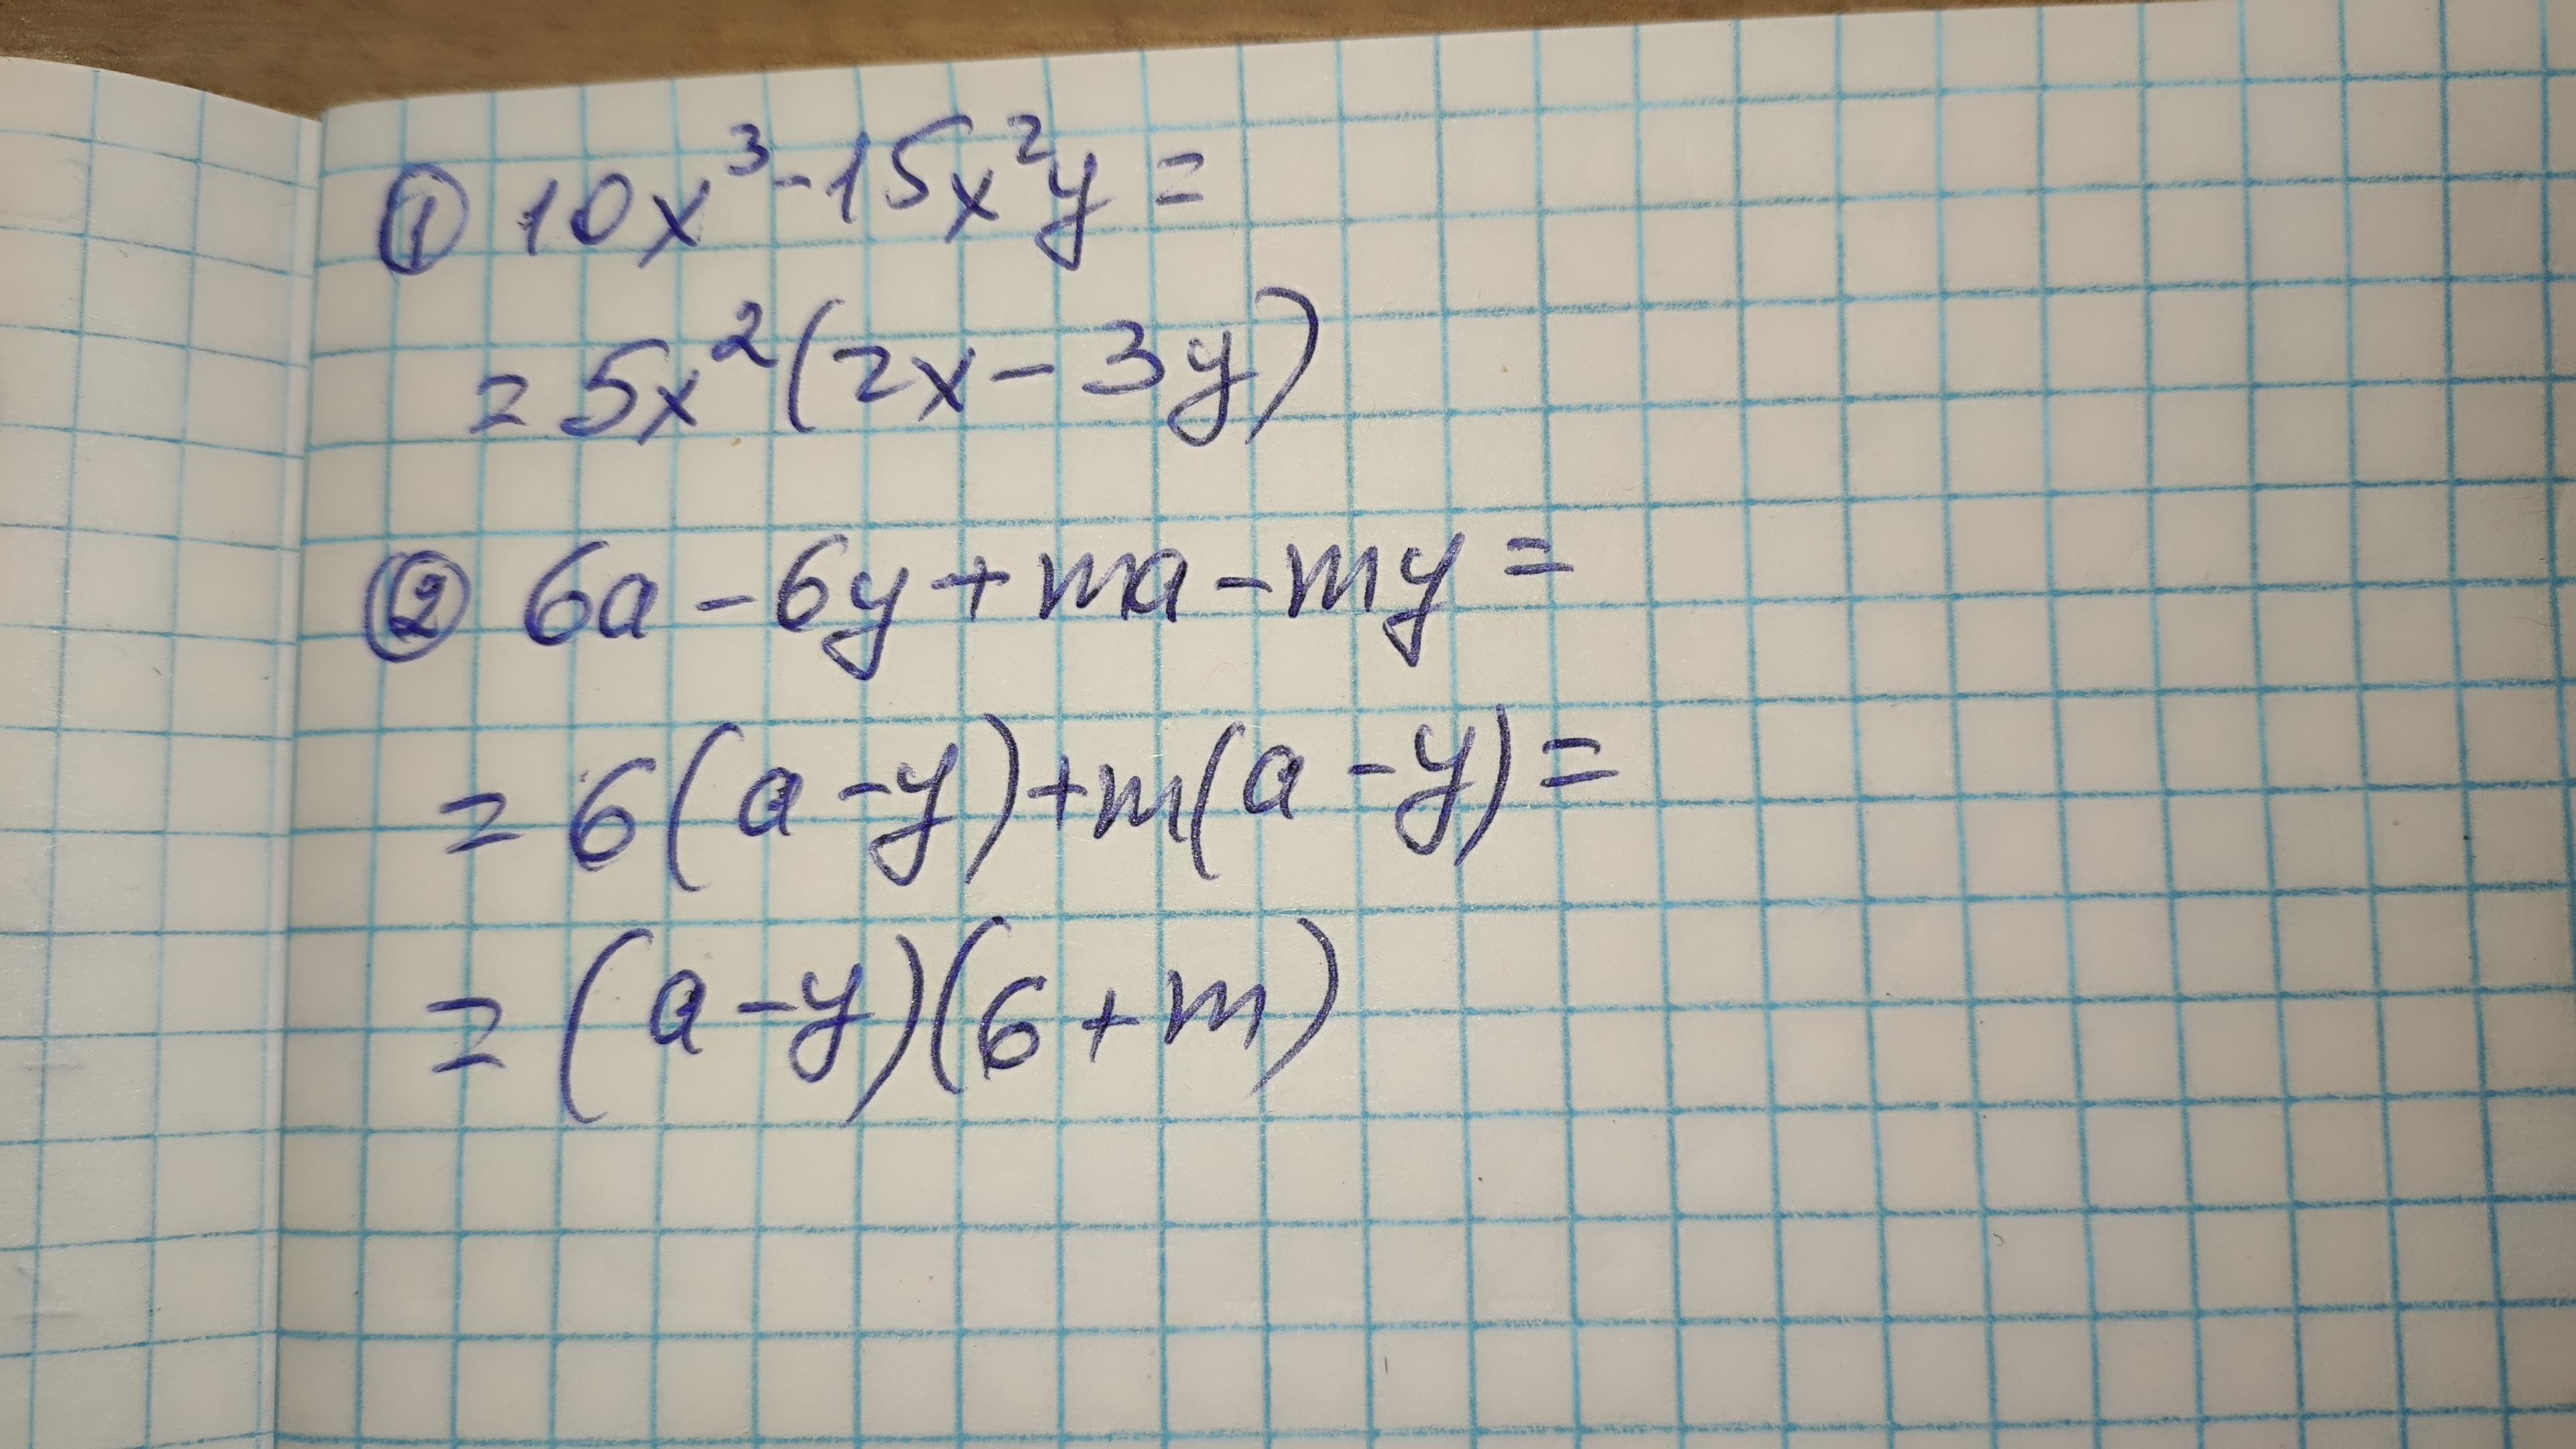 ① 10x³-15x²y=
=5x²(2x-3y)
② 6a-6y+ma-my=
=6(a-y)+m(a-y)=
=(a-y)(6+m)